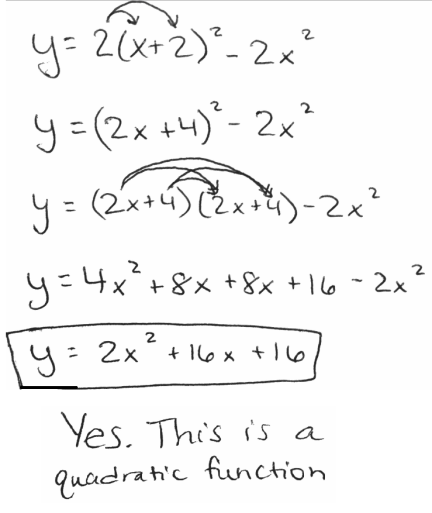 y = 2(x+2)² - 2x²
y = (2x +4)² - 2x²
y = (2x+4)(2x+4) - 2x²
y = 4x² + 8x + 8x + 16 - 2x²
y = 2x² + 16x + 16
Yes. This is a
quadratic function